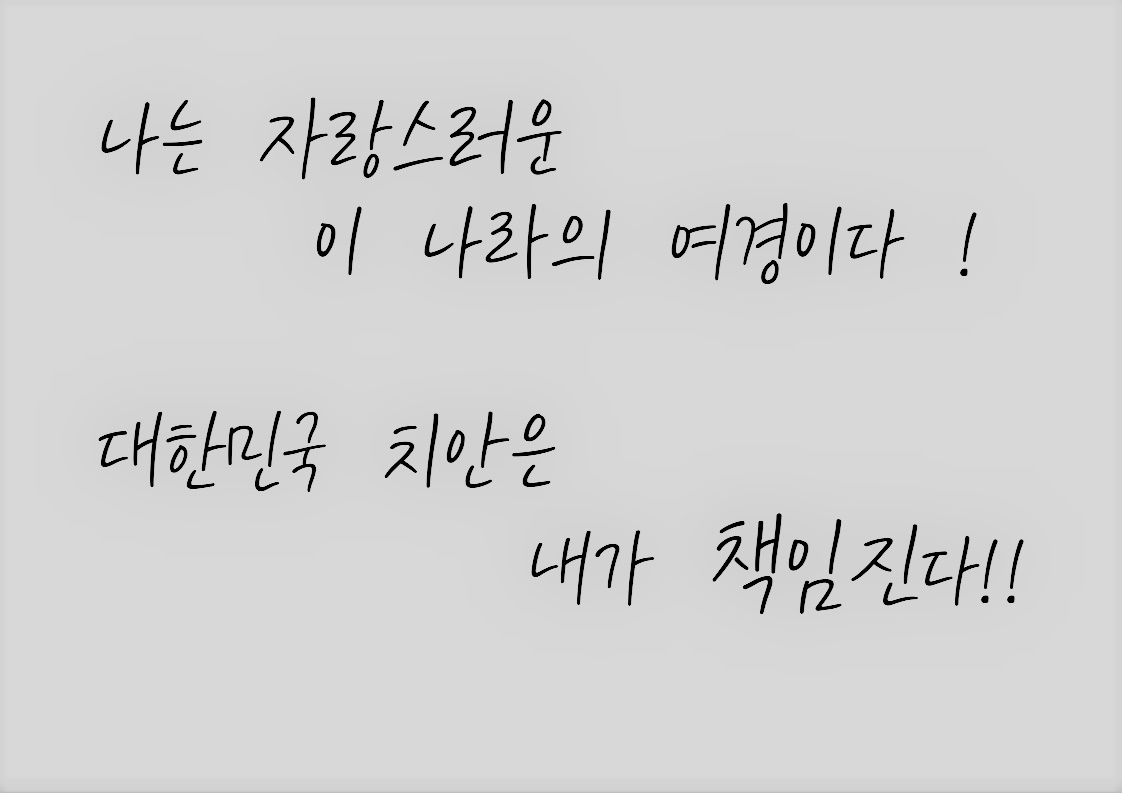 나는 자랑스러운
이 나라의 여경이다 !
대한민국 치안은
내가 책임진다!!